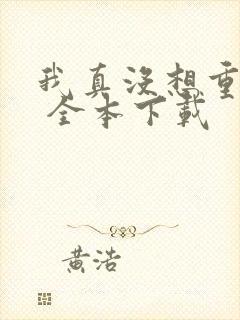 我真没想重
全本下载
黄浩